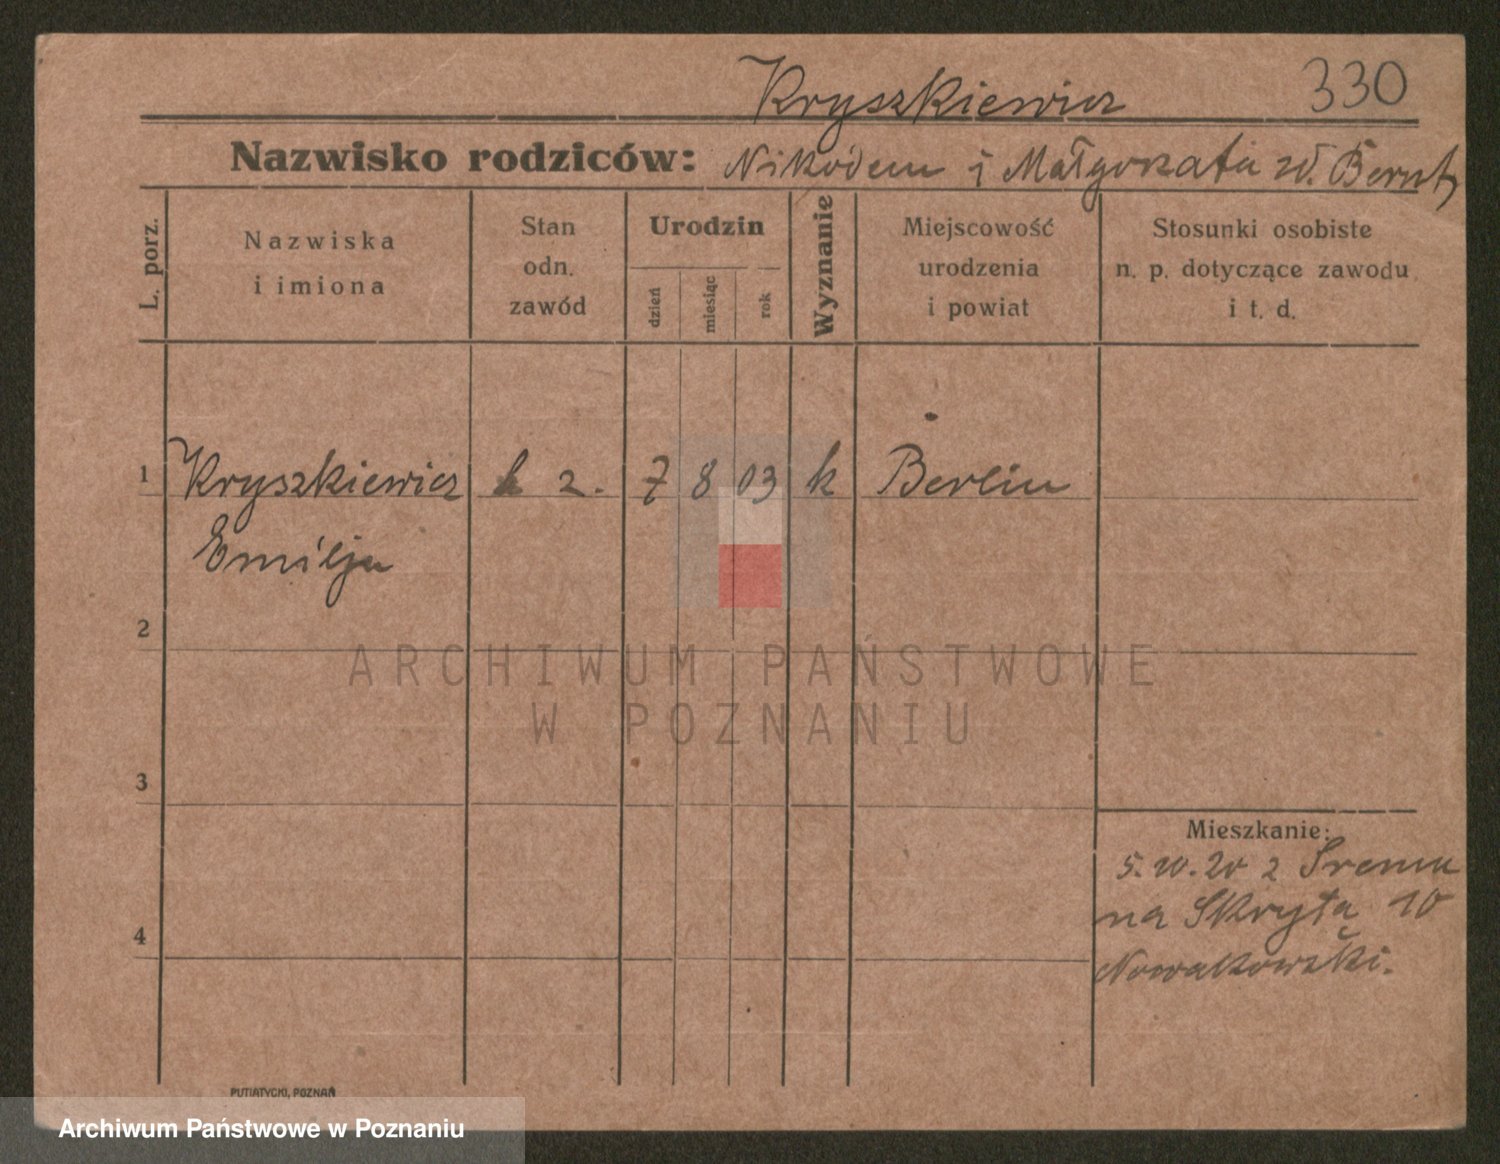 Kryszkiewicz 330
Nazwisko rodziców: Nikodem i Małgorzata
L. porz.
Nazwiska
i imiona
Stan
odn.
zawód
Urodzin
dzień
miesiąc
rok
Wyznanie
Miejscowość
urodzenia
i powiat
Stosunki osobiste
n. p. dotyczące zawodu
i t. d.
1 Kryszkiewicz 7 8 03 k Berlin
Emilja
2
ARCHIWUM PAŃSTWOWE
W POZNANIU
3
Mieszkanie:
5.10.20 z Śremu
na Skryta 10
4
Nowakowski.
PUTIATYCKI, POZNAŃ
Archiwum Państwowe w Poznaniu